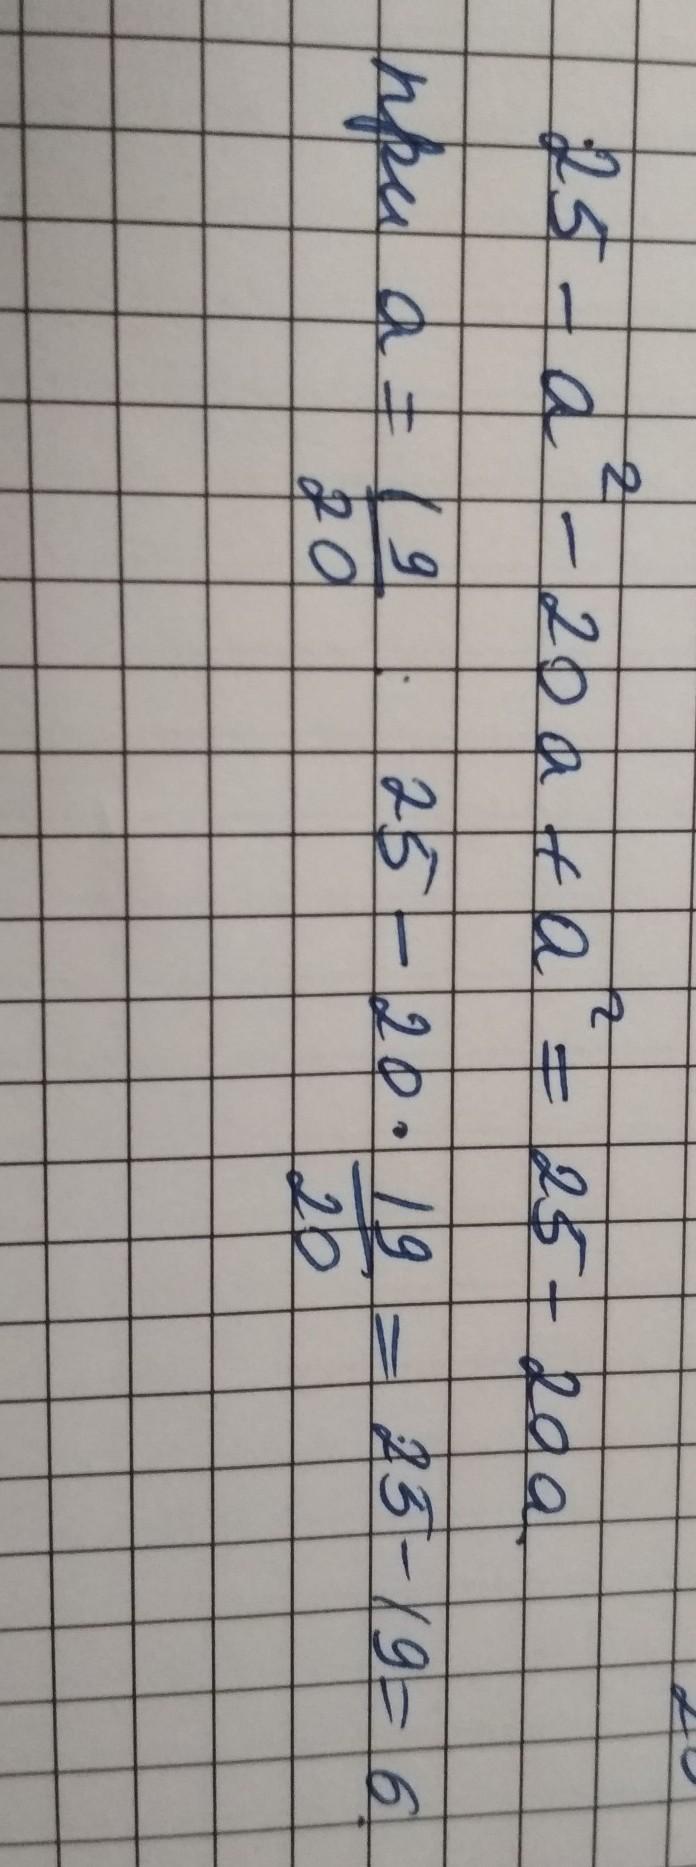 25 - a² - 20a + a² = 25 - 20a
при a = 19/20 25 - 20 · 19/20 = 25 - 19 = 6